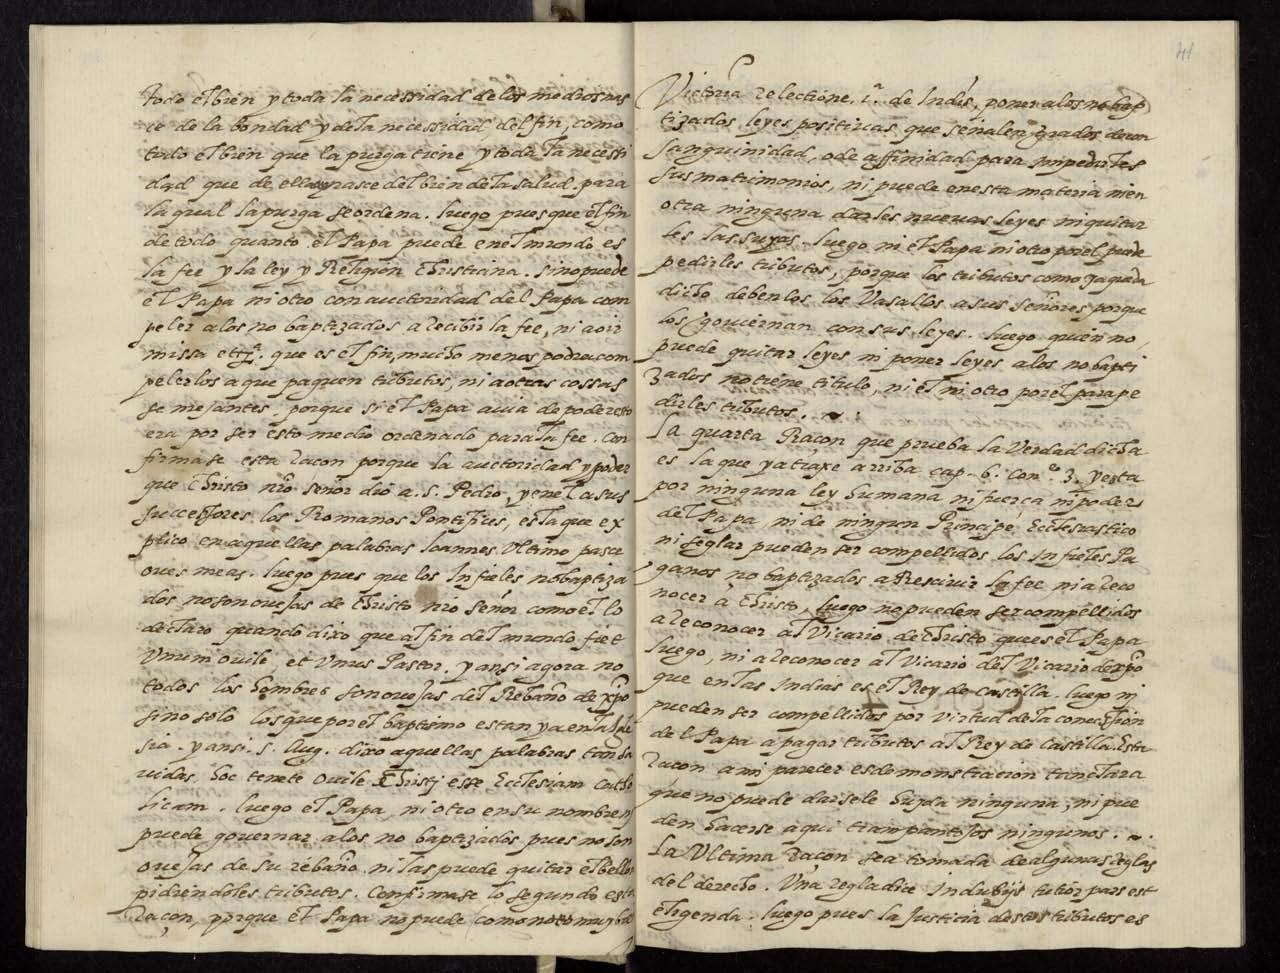 todo el bien y toda la necessidad de los medios nas
ce de la bondad y de la necessidad del fin, como
todo el bien que la purga tiene y toda la necessi
dad que de ella nasce del bien de la salud para
la qual la purga se ordena. luego pues que el fin
de todo quanto el Papa puede en el mundo es
la fee y la ley y Religion Christiana. sino puede
el Papa ni otro con auctoridad del Papa com
peler a los no baptizados a recibir la fee, ni a oir
missa ettª. que es el fin, mucho menos podra com
pelerlos a que paguen tributos, ni a otras cossas
semejantes. porque si el Papa avia de poder esto
era por ser esto medio ordenado para la fee. Con
firmase esta racon porque la auctoridad y poder
que Christo nro señor dio a. S. Pedro, y en el a sus
successores los Romanos Pontifices, es la que ex
plico en aquellas palabras Ioannes Ultimo pasce
oues meas. luego pues que los Infieles no baptiza
dos no son ovejas de Christo nro señor como el lo
declaro quando dixo que al fin del mundo fiet
Vnum ouile, et Vnus Pastor. y ansi agora no
todos los hombres son ovejas del Rebaño de xpo
sino solo los que por el baptismo estan ya en la Igle
sia. y ansi. S. Aug. dixo aquellas palabras tan sa
uidas, hoc tenete Ouile Christi esse Ecclesiam catho
licam. luego el Papa, ni otro en su nombre
puede governar a los no baptizados pues no son
ovejas de su rebaño, ni las puede quitar el bello
pidiendoles tributos. Confirmase lo segundo esta
raçon, porque el Papa no puede como noto muy
41
Victoria relectione. 1ª. de Indis, poner a los no bap
tizados leyes positivas que señalen grados de con
sanguinidad, o de affinidad para impedirles
sus matrimonios, ni puede en esta materia ni en
otra ninguna darles nuevas leyes ni quitar
les las suyas. luego ni el Papa ni otro por el puede
pedirles tributos, porque los tributos como ya queda
dicho deben los los Vasallos a sus señores porque
los gouiernan con sus leyes. luego quien no
puede quitar leyes ni poner leyes a los no bapti
zados no tiene titulo, ni el ni otro por el para pe
dirles tributos.
La quarta Racon que prueba la Verdad dicha
es la que ya traxe arriba cap. 6. Con.º 3. y esta
por ninguna ley humana ni fuerça ni poder
del Papa, ni de ningun Principe Ecclesiastico
ni seglar pueden ser compellidos los Infieles Pa
ganos no baptizados a Rescivir la fee ni a reco
nocer à Christo, luego no pueden ser compellidos
a reconocer al Vicario de Christo, que es el Papa
luego, ni a reconocer al Vicario del Vicario de xpo
que en las Indias es el Rey de Castilla. luego ni
pueden ser compellidos por virtud de la concession
del Papa a pagar tributos al Rey de Castilla. Esta
racon a mi parecer es demonstracion tan clara
que no puede darsele huyda ninguna, ni pue
den hacerse aqui trampantojos ningunos.
La Ultima raçon sea tomada de algunas reglas
del derecho. Una regla dice In dubijs tutior pars est
eligenda. luego pues la Justicia destos tributos es